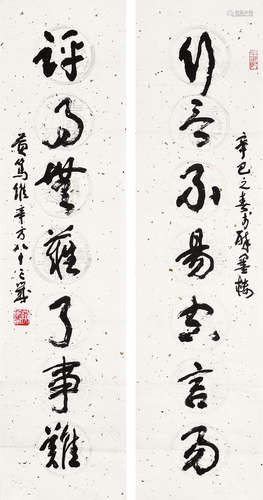 行不易言易
評無難了事難
辛巳之春於醉墨樓
黃篤維年方八十三歲